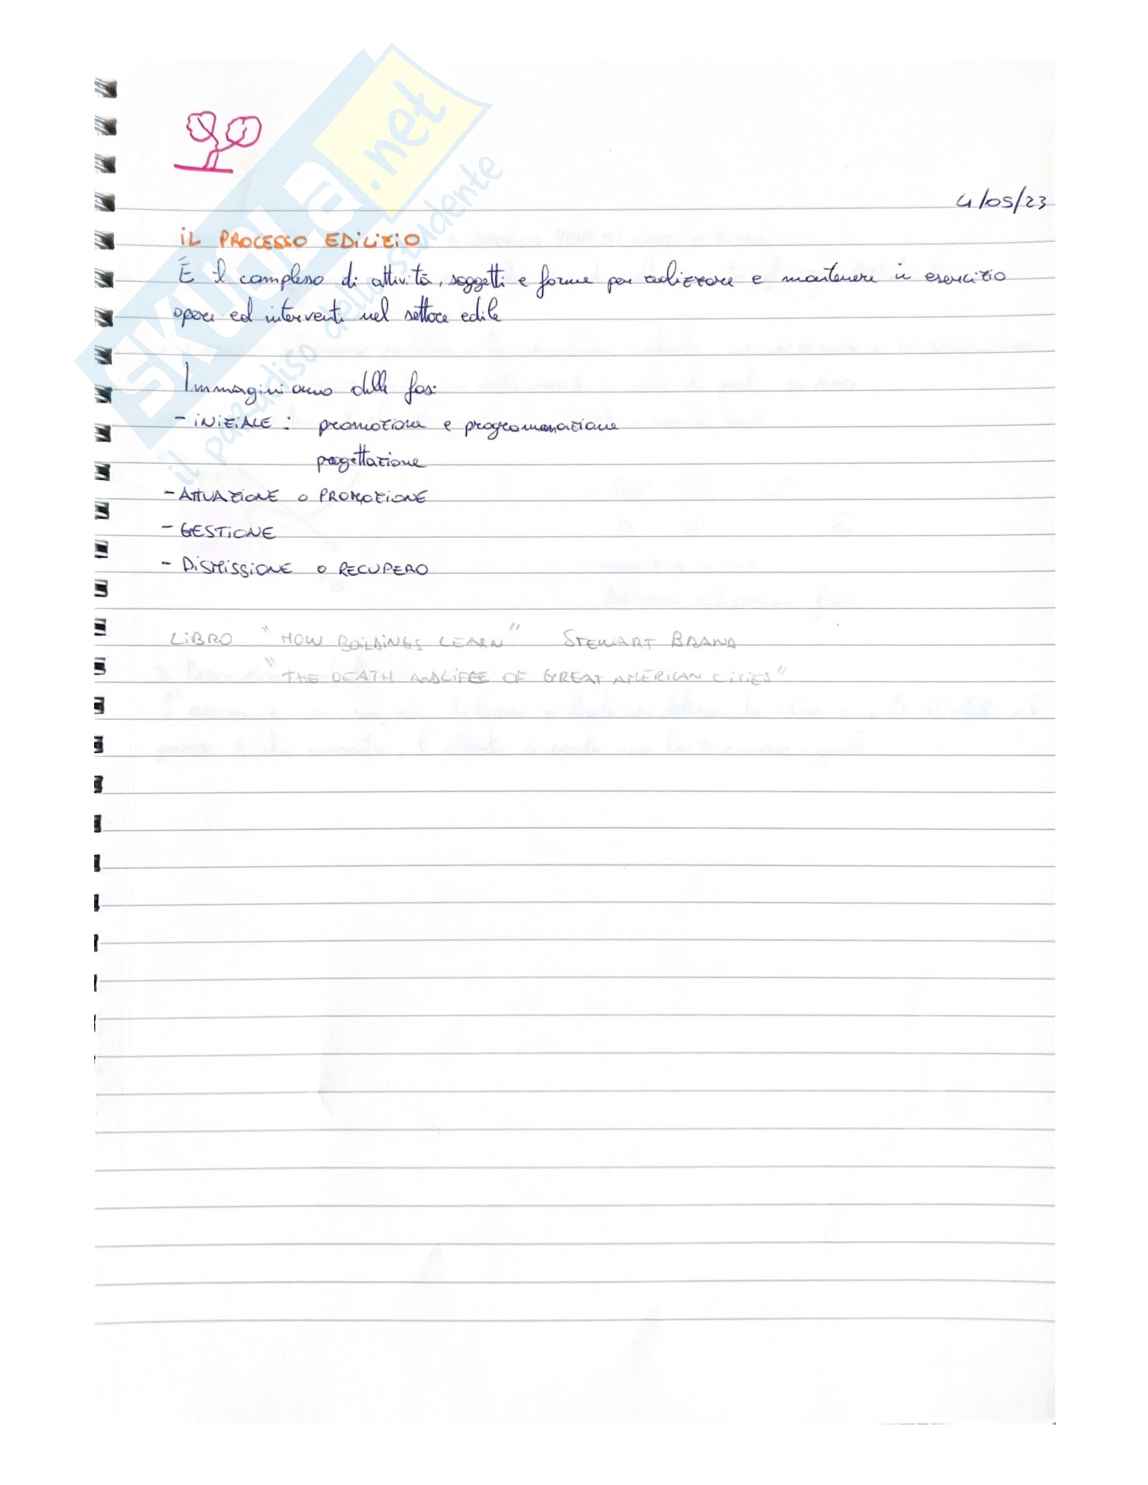 SKUOLA.net
il paradiso dello studente
4/05/23
iL PROCESSO EDiLiZiO
È il complesso di attività, soggetti e forme per realizzare e mantenere in esercizio
opere ed interventi nel settore edile
Immaginiamo delle fasi
- iNiZiALE : promozione e programmazione
progettazione
- ATTUAZIONE o PROMOZIONE
- GESTiONE
- DiSMiSSiONE o RECUPERO
LiBRO "HOW BUiLDiNGS LEARN" STEWART BRAND
"THE DEATH AND LiFEE OF GREAT AMERICAN CiTiES"